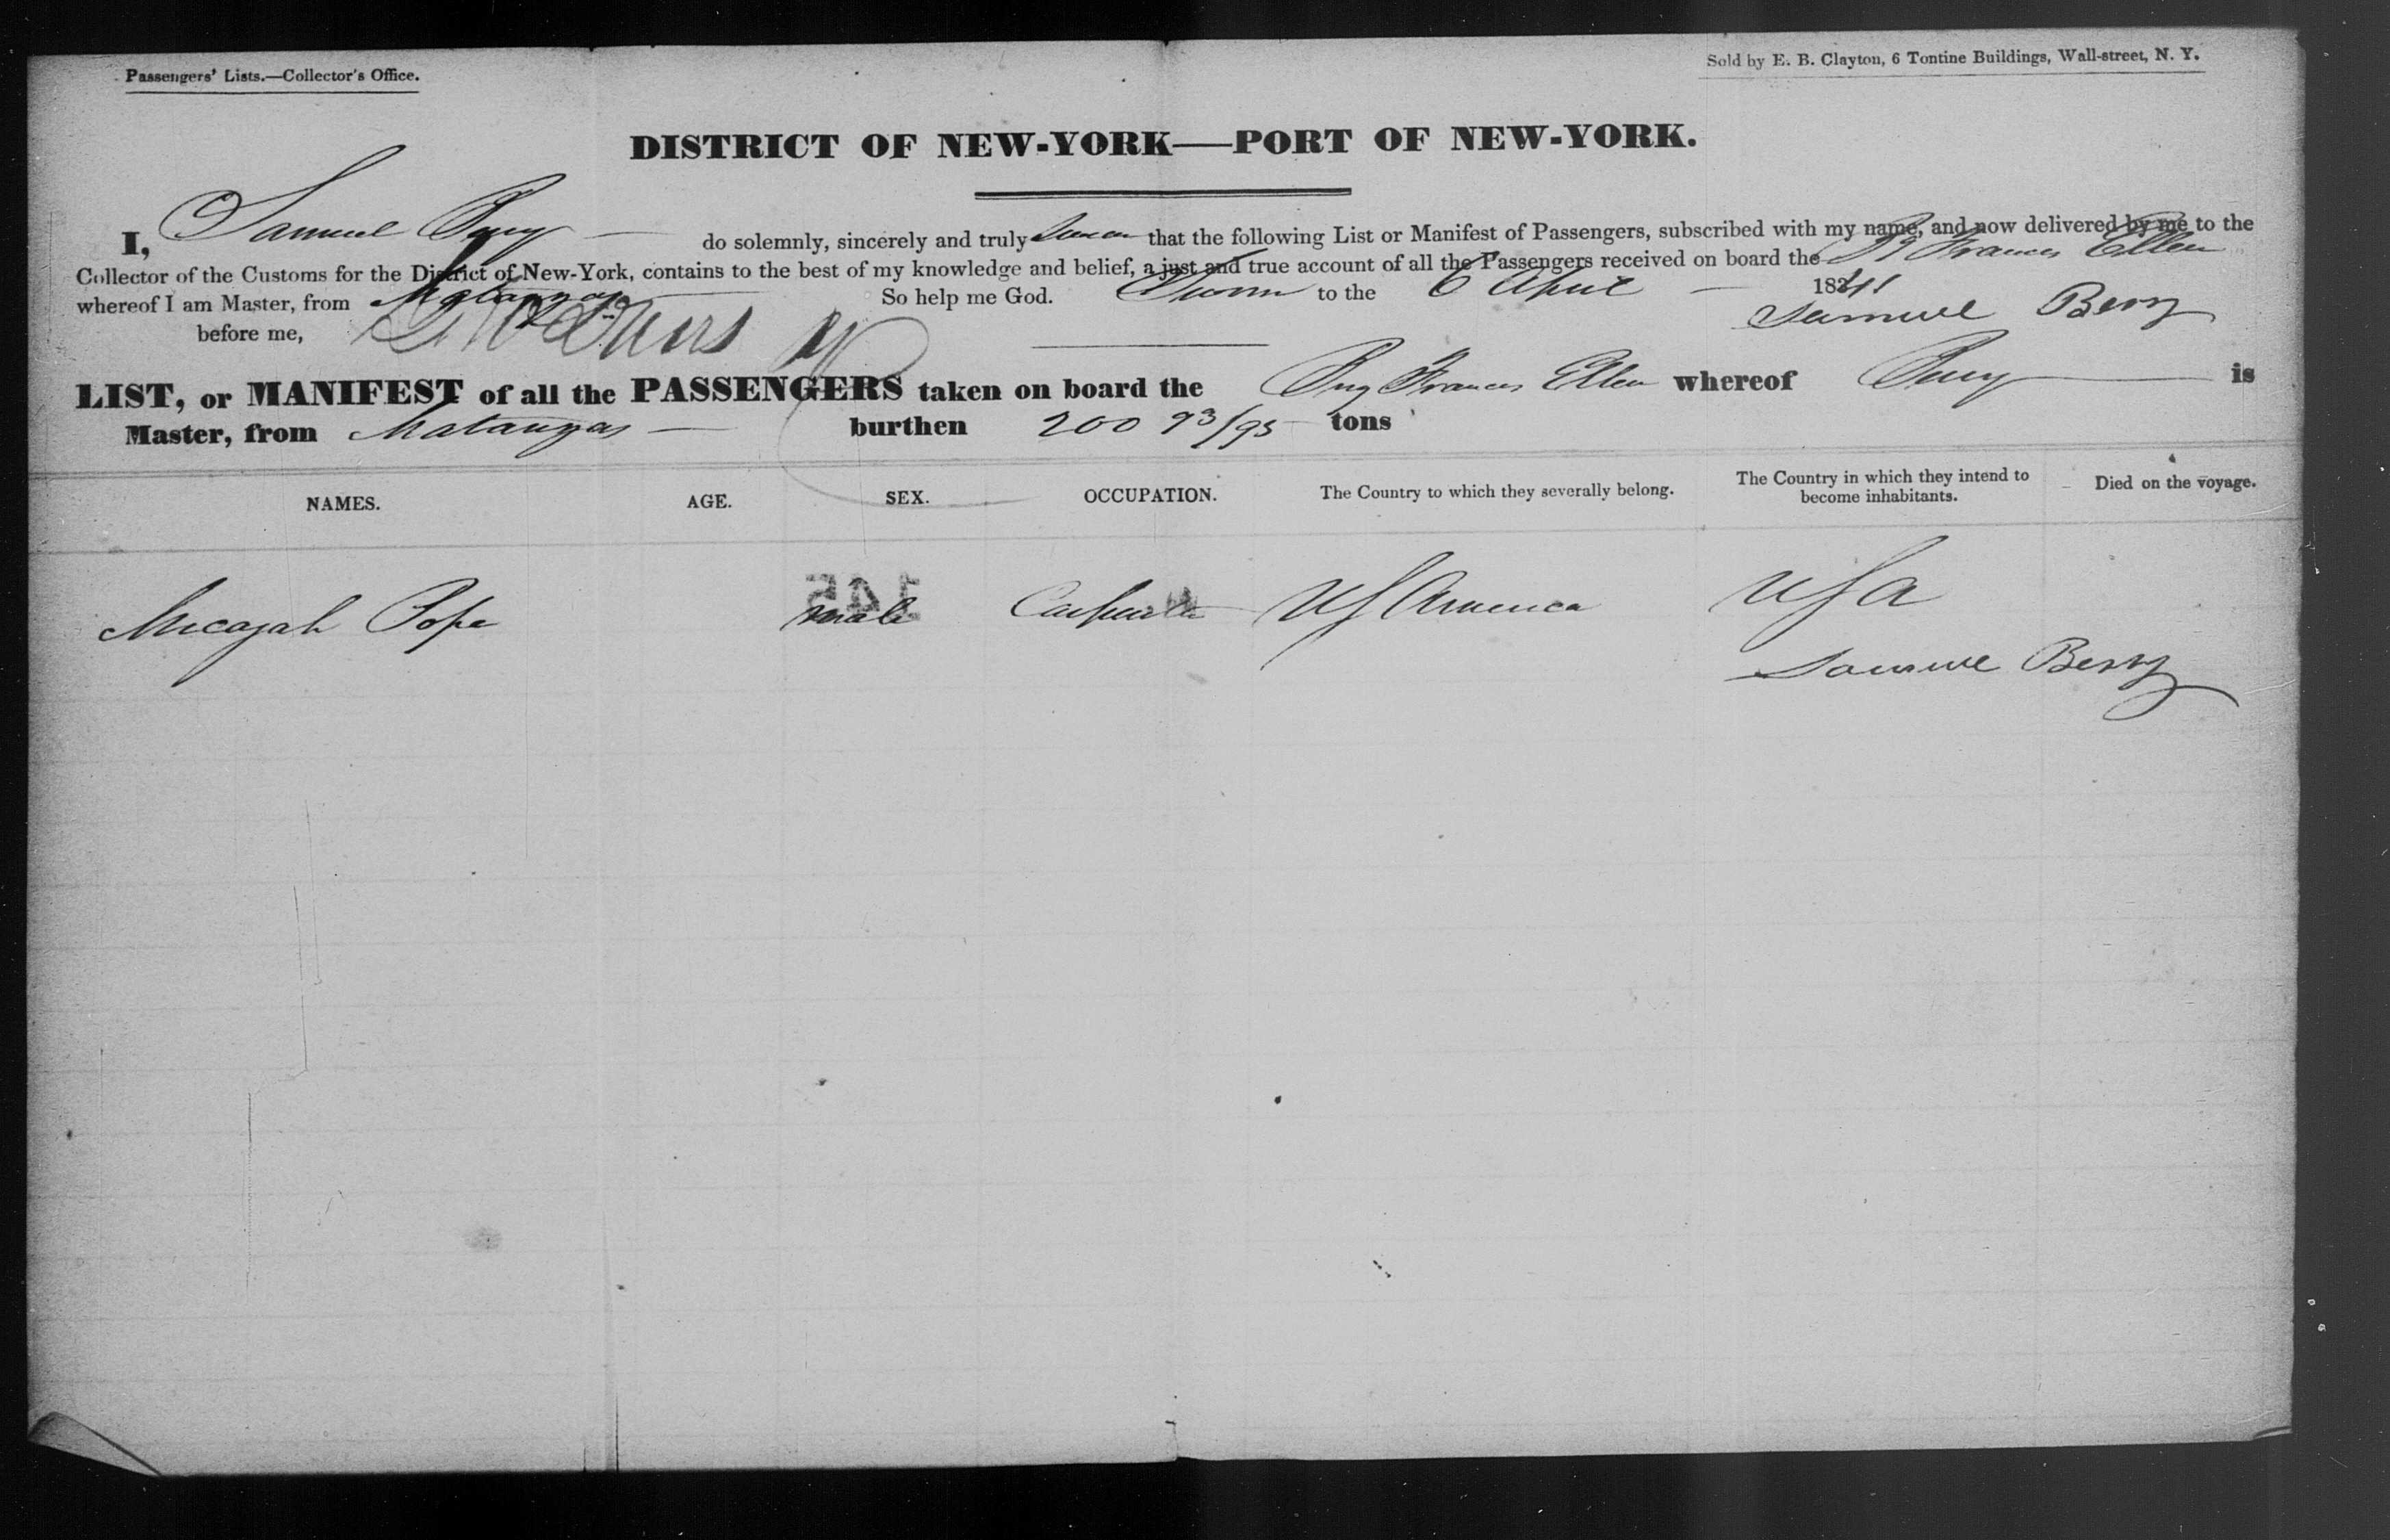 Passengers' Lists.—Collector's Office.
Sold by E. B. Clayton, 6 Tontine Buildings, Wall-street, N. Y.
DISTRICT OF NEW-YORK—PORT OF NEW-YORK.
I, Samuel Berry do solemnly, sincerely and truly swear that the following List or Manifest of Passengers, subscribed with my name, and now delivered by me to the
Collector of the Customs for the District of New-York, contains to the best of my knowledge and belief, a just and true account of all the Passengers received on board the Bg Frances Ellen
whereof I am Master, from Matanzas So help me God. Sworn to the 6 April 1841
Samuel Berry
before me,
LIST, or MANIFEST of all the PASSENGERS taken on board the Brig Frances Ellen whereof Berry is
Master, from Matanzas burthen 200 93/95 tons
NAMES. AGE. SEX. OCCUPATION. The Country to which they severally belong. The Country in which they intend to become inhabitants. Died on the voyage.
145
Micajah Pope male Carpenter US America USA
Samuel Berry